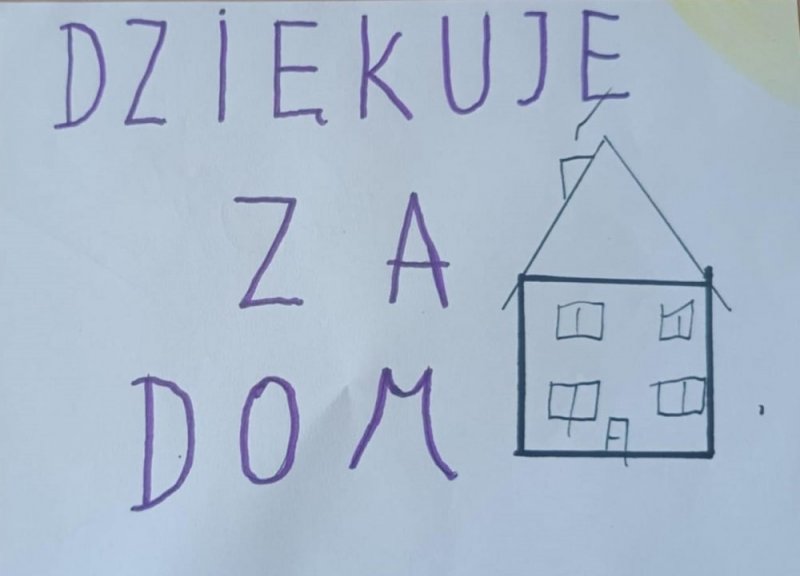 DZIĘKUJĘ
ZA
DOM